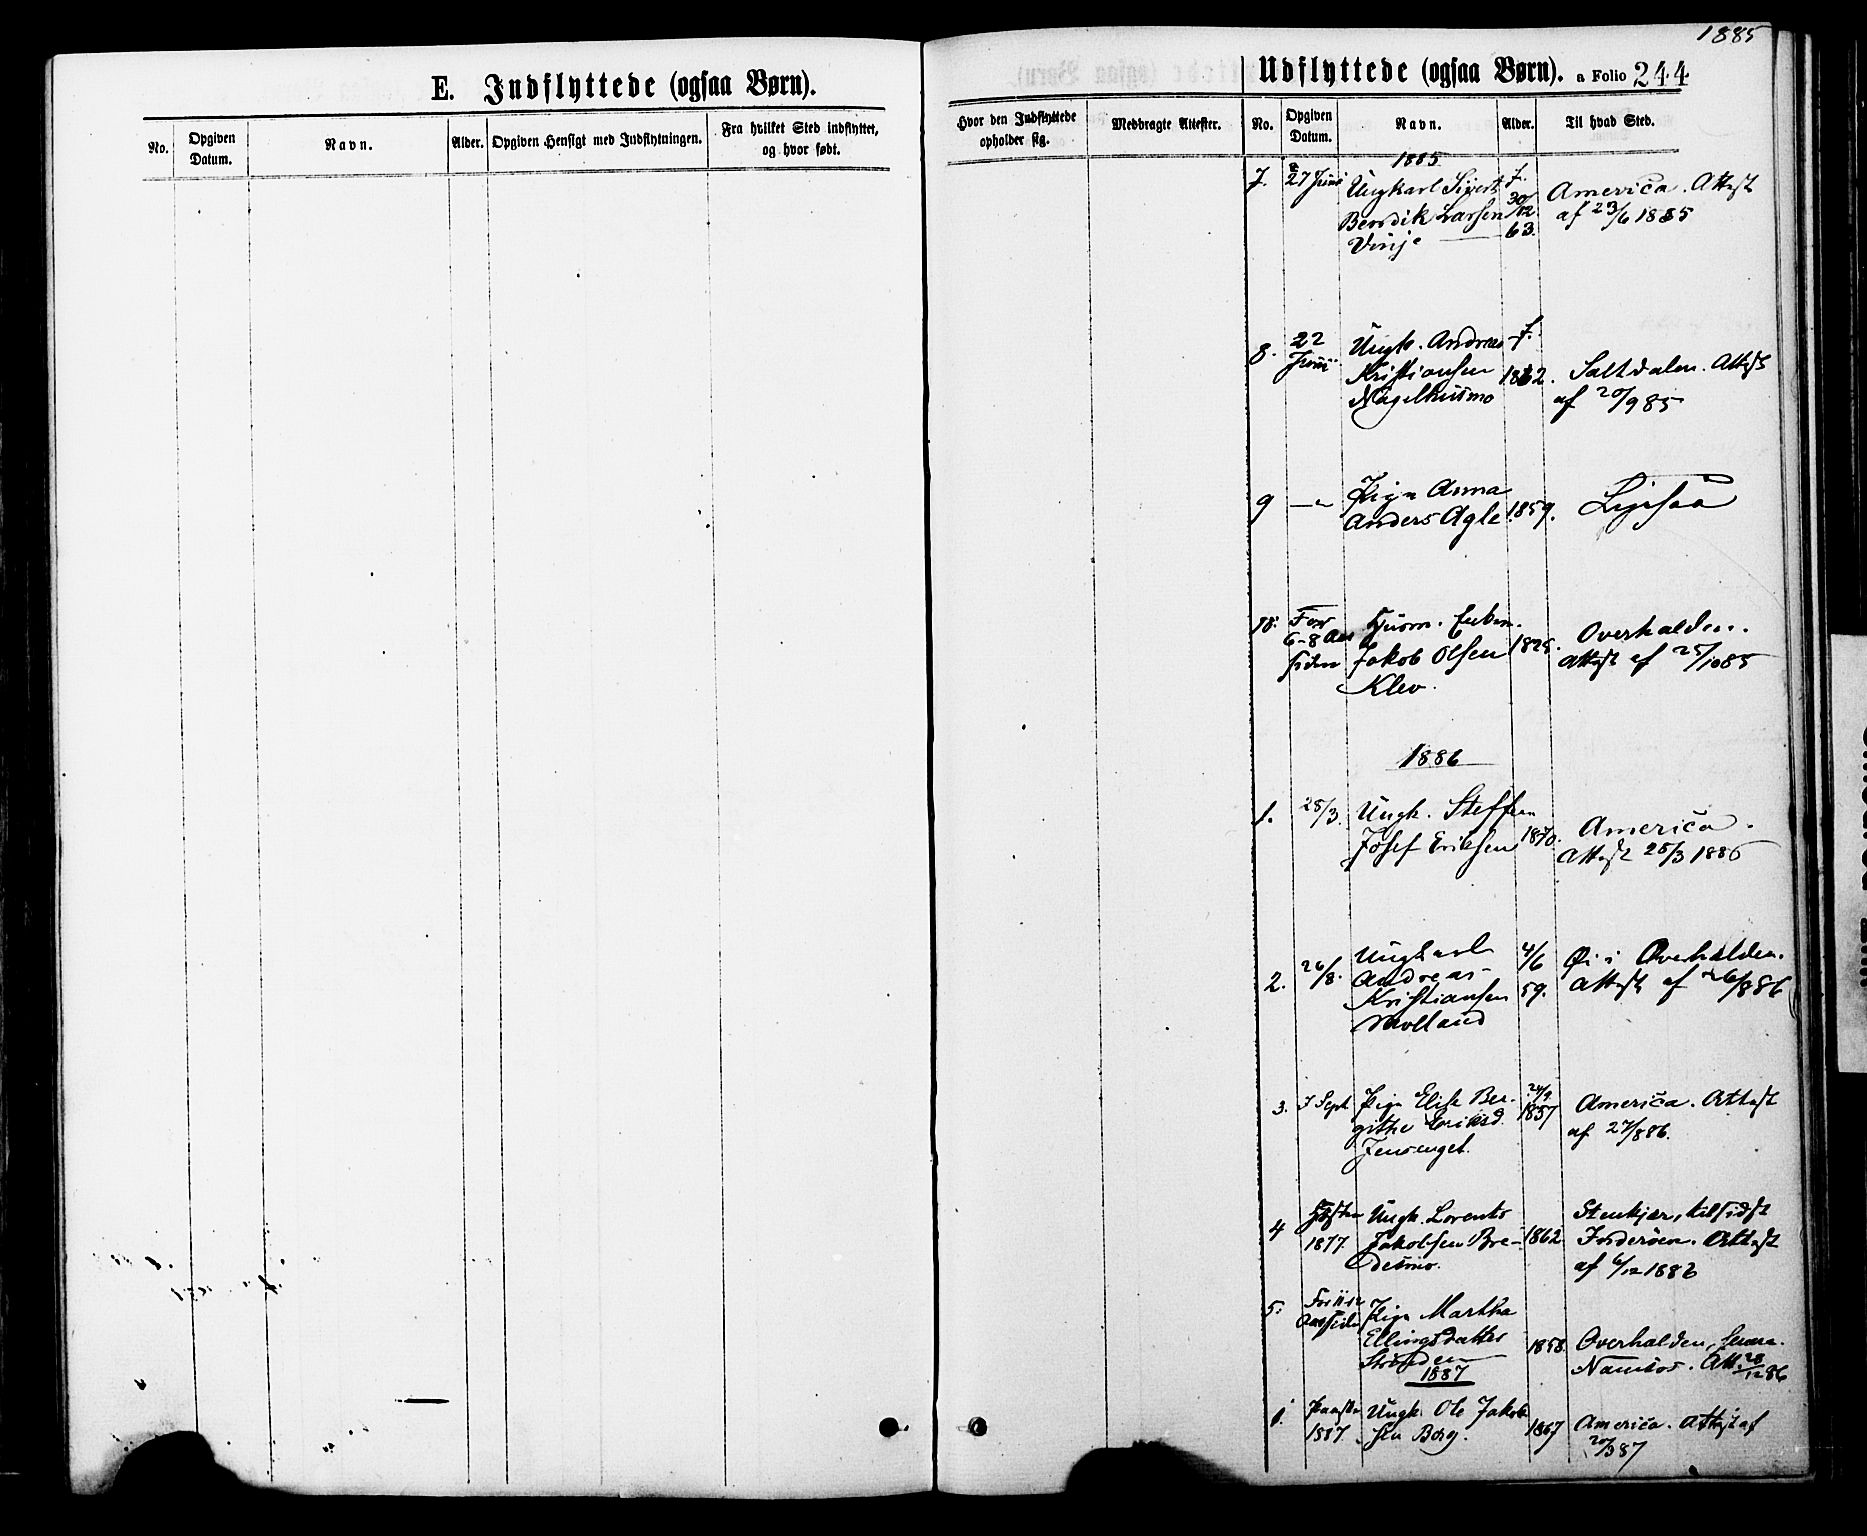 1885
E. Indflyttede (ogsaa Børn).
No.
Opgiven Datum.
Navn.
Alder.
Opgiven Hensigt med Indflytningen.
Fra hvilket Sted indflyttet, og hvor født.
Udflyttede (ogsaa Børn). a Folio 244
Hvor den Indflyttede opholder sig.
Medbragte Attester.
No.
Opgiven Datum.
Navn.
Alder.
Til hvad Sted.
1885
7. 27 Juni Ungkarl Sivert f. America. Attest
Bendik Larsen 30/12 af 23/6 1885
Vinje 63.
8. 22 Juni Ungk. Andreas f.
Kristiansen 1862. Saltdalen. Attest
Nagelhusmo af 20/9 85
9 Pige Anna
Anders Agle 1859.
10. For Husm. Enkem.
6-8 Aar Jakob Olsen 1825. Overhalden.
siden Klev. Attest af 25/10 85
1886
1. 25/3. Ungk. Steffen
Josef Eriksen 1870. America.
Attest 25/3 1886
2. 26/8. Ungkarl 4/6 Øi i Overhalden.
Andreas 59. Attest af 26/8 86
Kristiansen
Moland
3. Sept Pige Elise Ber- 24/9 America. Attest
githe Eriksd. 1857 af 27/8 86.
Jensenget.
4 Høsten Ungk. Lorents Stenkjær, tilsidst
1877. Jakobsen Bre- 1862. Inderøen. Attest
demo. af 6/12 1886
5. For 11 a 12 Pige Martha
Aar siden Ellingsdatter 1858. Overhalden,
Strinden Namsos. Att. 28/12 86
1887
1. Ungk. Ole Jakob- 1867 America. Attest af
1887. sen Borg. 20/3 87